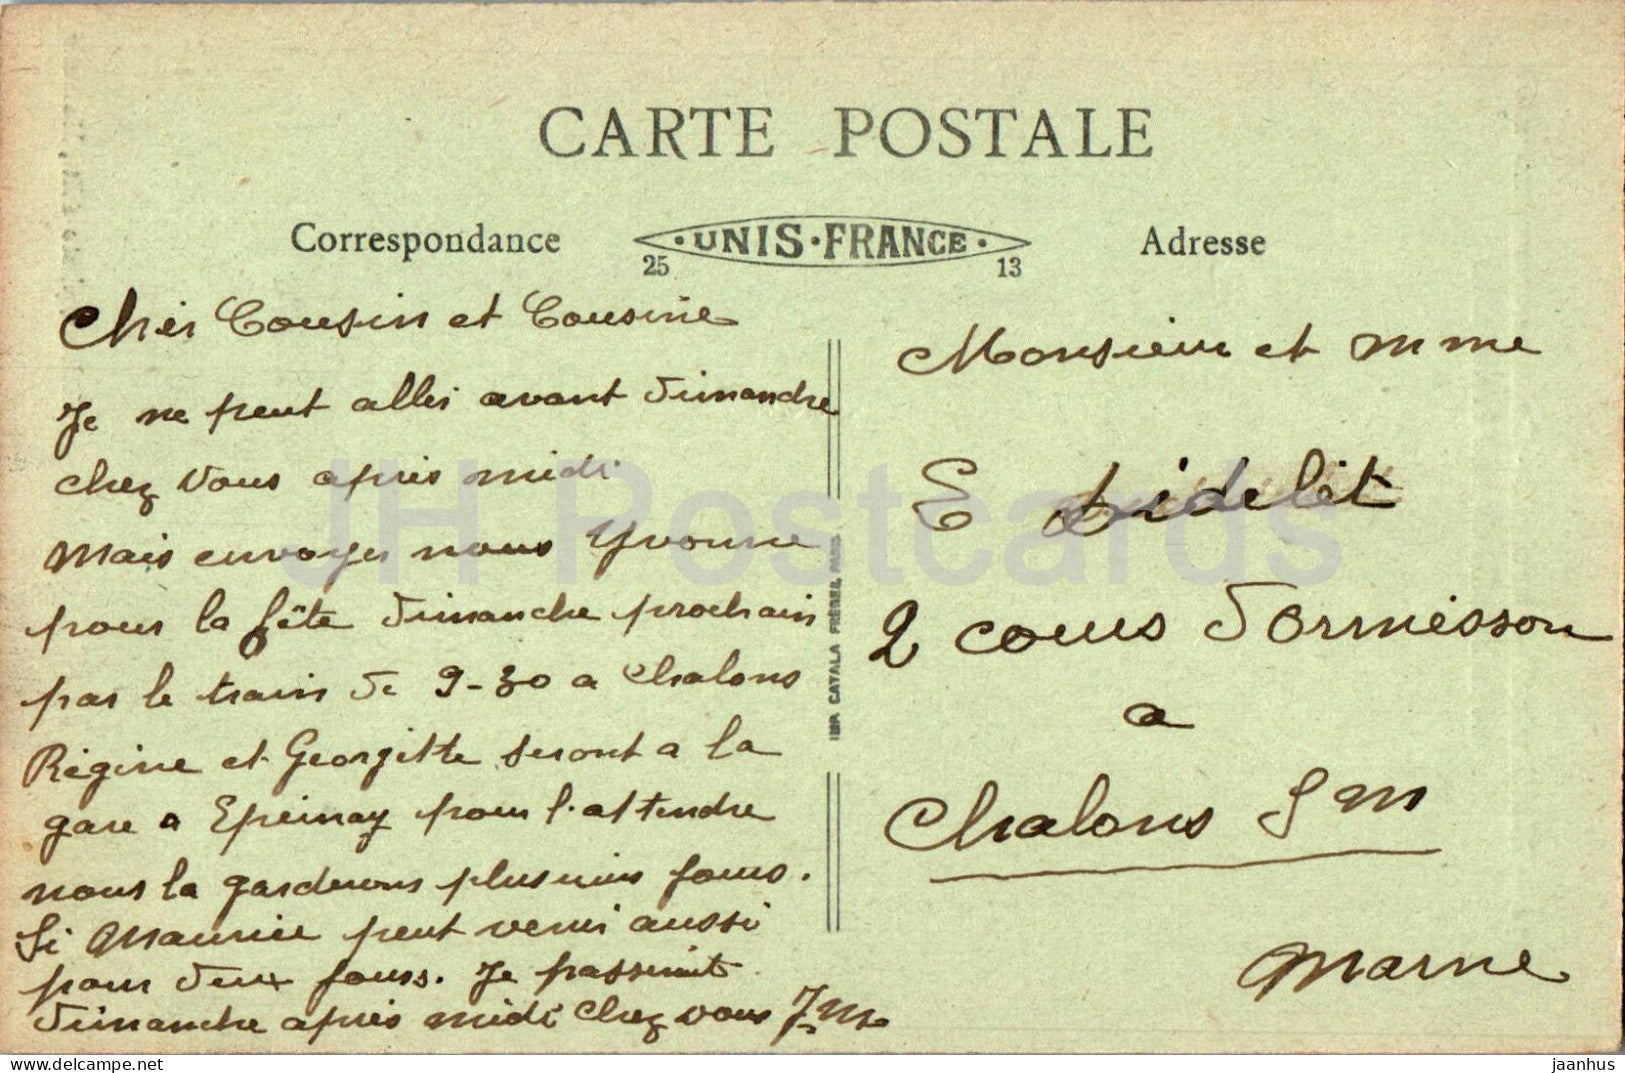 CARTE POSTALE
Correspondance
UNIS·FRANCE
25 13
Adresse
Cher Cousin et Cousine
Je ne peut aller avant dimanche
chez vous après midi
mais envoyer nous Yvonne
pour la fête dimanche prochain
par le train de 9-30 a Chalons
Régine et Georgette seront a la
gare a Epernay pour l'attendre
nous la garderons plusieurs jours.
Si Maurice peut venir aussi
pour deux jours. Je
dimanche après midi chez vous J.M.
IMP CATALA FRÈRES, PARIS
Monsieur et mme
E Didelit
2 cours d'Ormesson
a
Chalons S M
Marne
JH Postcards
delcampe.net
jaanhus